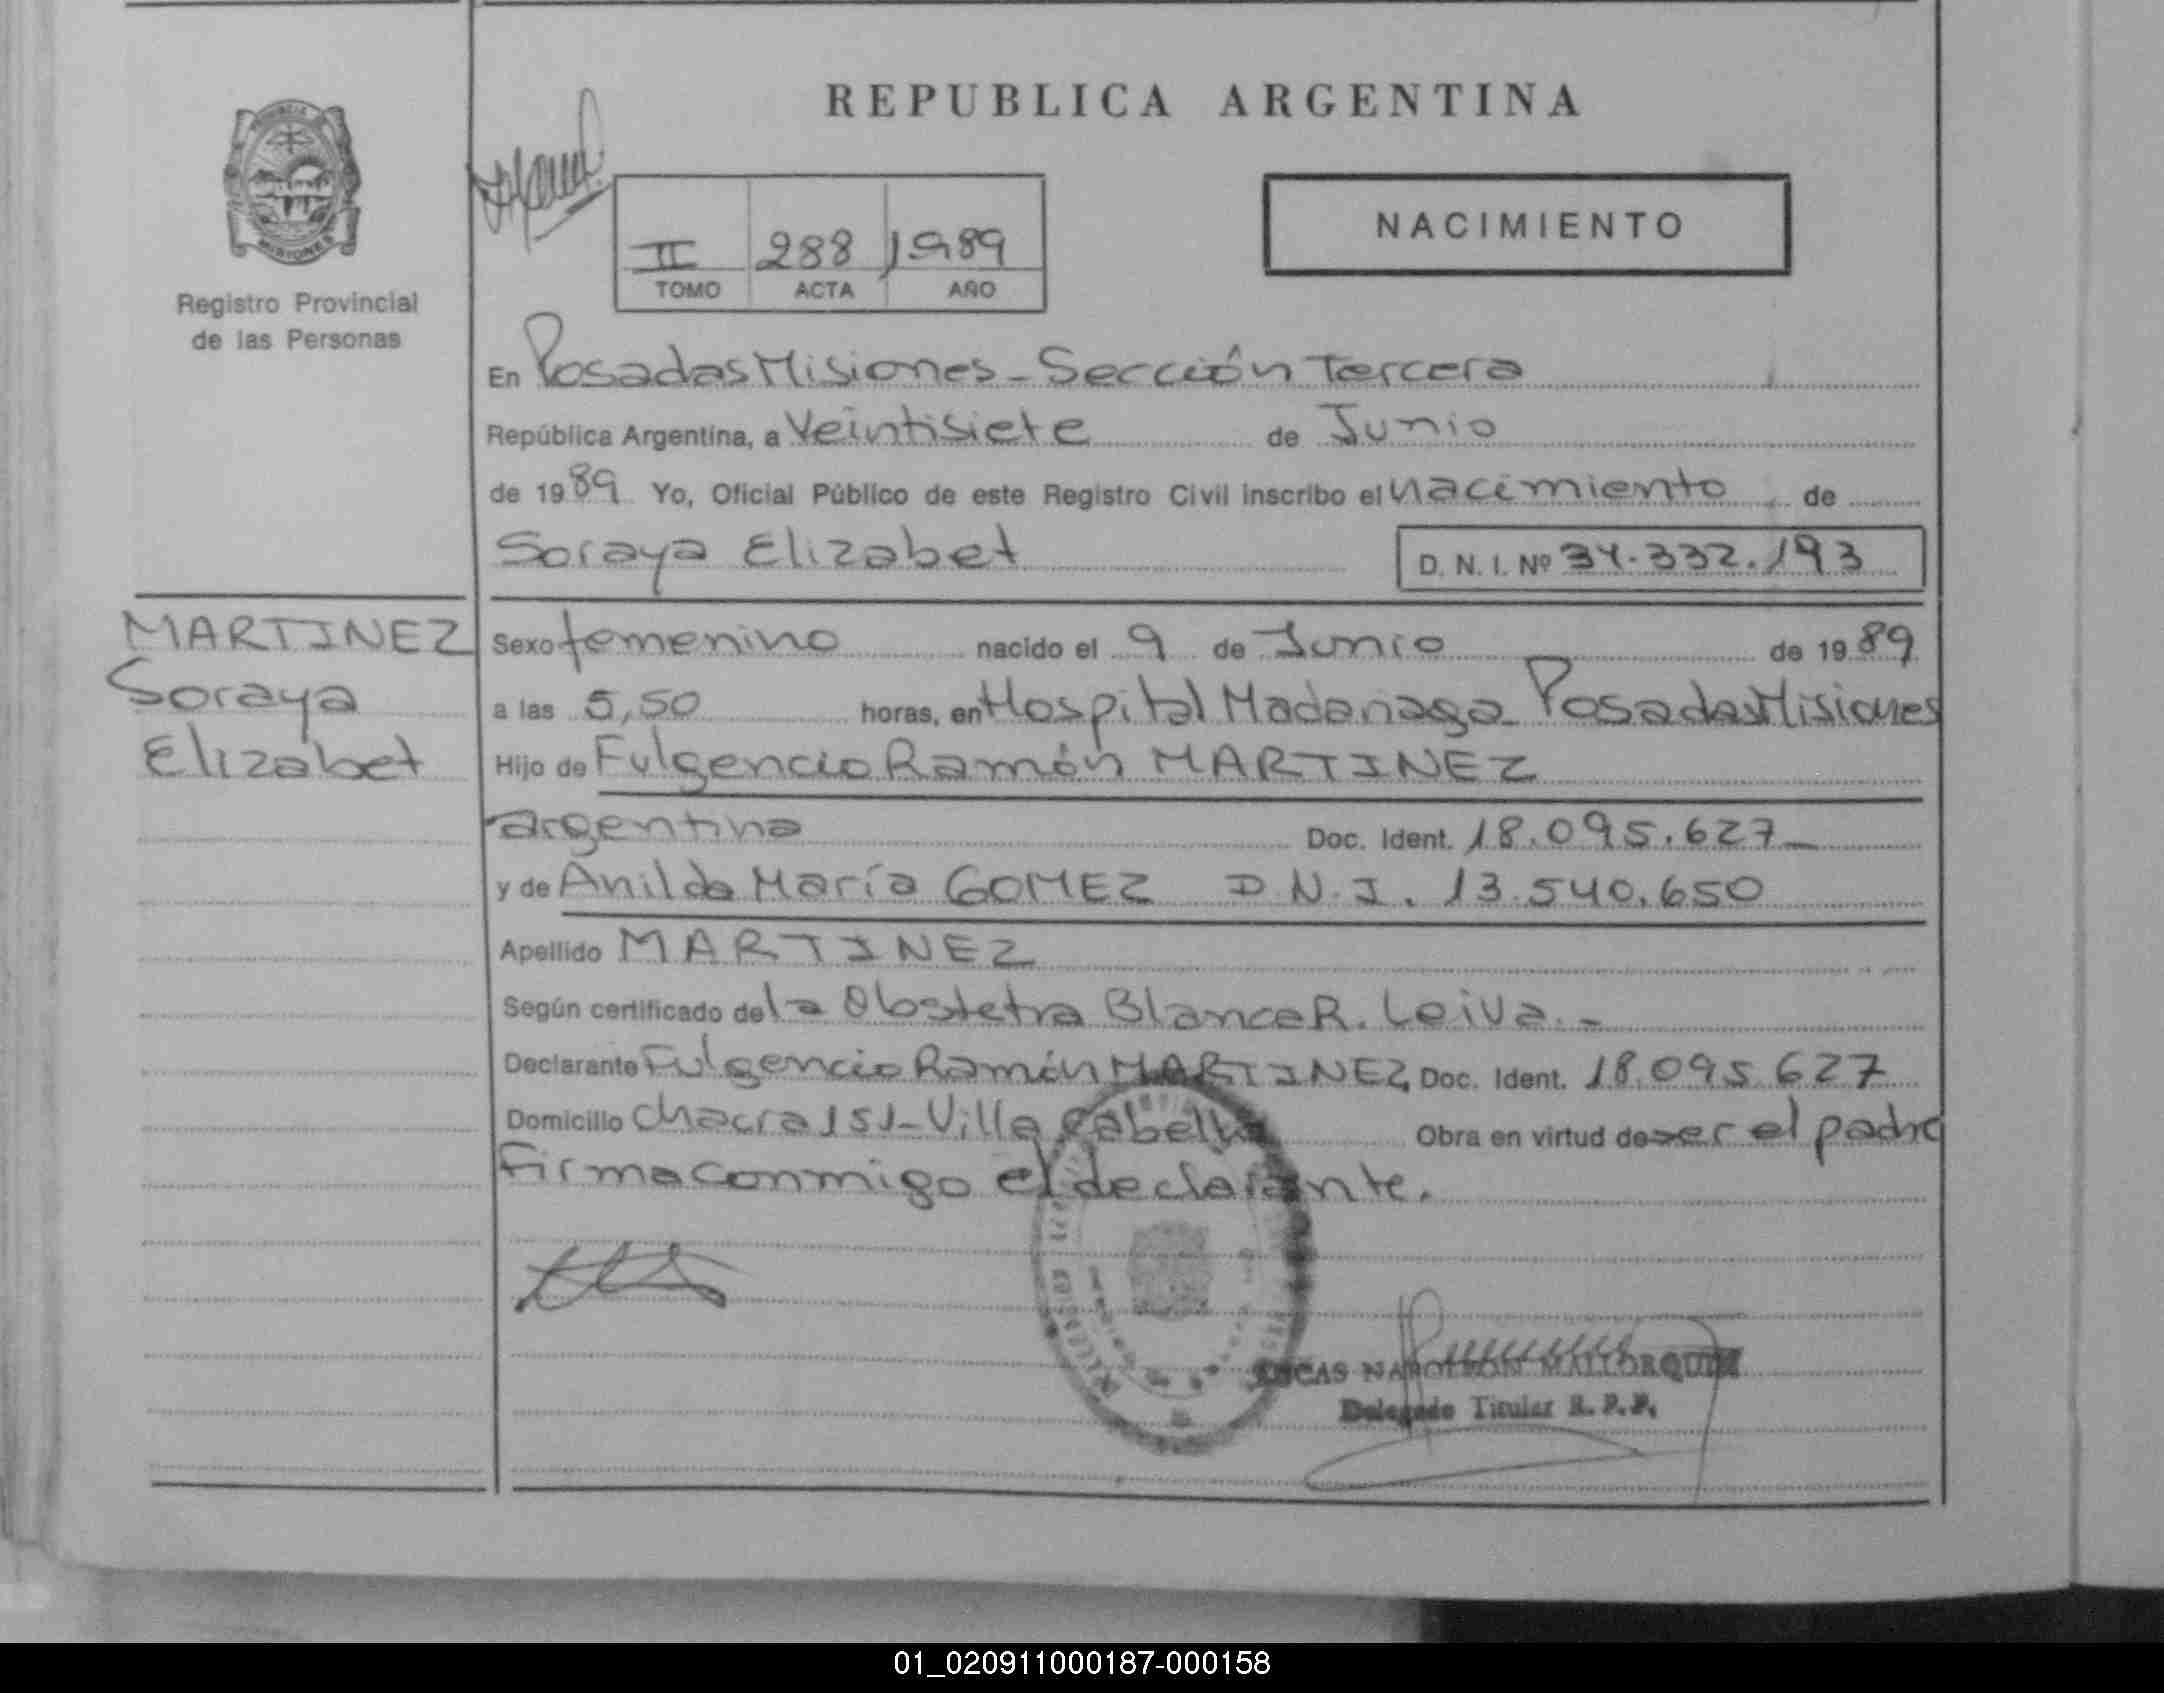 REPUBLICA ARGENTINA
NACIMIENTO
II 288 1989
TOMO ACTA AÑO
Registro Provincial
de las Personas
En Posadas Misiones - Sección Tercera
República Argentina, a Veintisiete de Junio
de 1989 Yo, Oficial Público de este Registro Civil inscribo el nacimiento de
Soraya Elizabet D. N. I. Nº 34.332.193
MARTINEZ
Soraya
Elizabet
Sexo femenino nacido el 9 de Junio de 1989
a las 5,50 horas, en Hospital Madariaga Posadas Misiones
Hijo de Fulgencio Ramón MARTINEZ
argentina Doc. Ident. 18.095.627
y de Anilda María GOMEZ D.N.I. 13.540.650
Apellido MARTINEZ
Según certificado de la Obstetra Blanca R. Leiva.-
Declarante Fulgencio Ramón MARTINEZ Doc. Ident. 18.095.627
Domicilio Chacra 151-Villa Cabello Obra en virtud de ser el padre
Firma conmigo el declarante.
LUCAS NAPOLEON MALLORQUIN
Delegado Titular R. P. P.
01_020911000187-000158